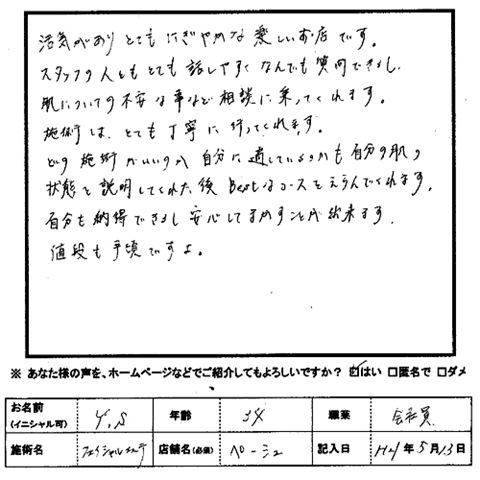 活気がありとてもにぎやかな楽しいお店です。
スタッフの人ともとても話しやすくなんでも質問できるし、
肌についての不安な事など相談に乗ってくれます。
施術は、とても丁寧に行ってくれます。
どの施術がいいのか自分に適しているのかも自分の肌の
状態を説明してくれた後Bestなコースをえらんでくれます。
自分も納得できるし安心してまかすことが出来ます。
値段も手頃ですよ。
※ あなた様の声を、ホームページなどでご紹介してもよろしいですか? ☑はい □匿名で □ダメ
お名前(イニシャル可) Y.S 年齢 職業 会社員
施術名 フェイシャルエステ 店舗名(必須) ペーシュ 記入日 H21年5月13日